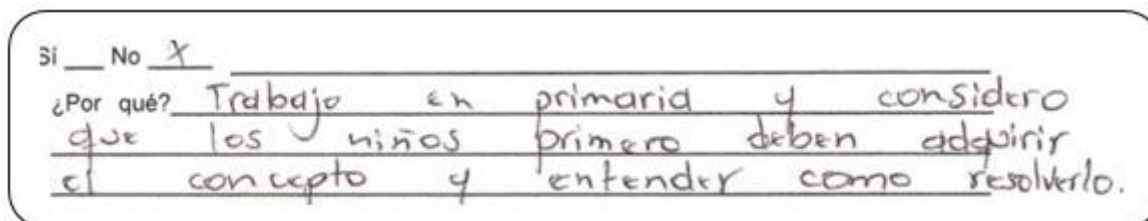 Sí ___ No _X_
¿Por qué? Trabajo en primaria y considero
que los niños primero deben adquirir
el concepto y entender como resolverlo.